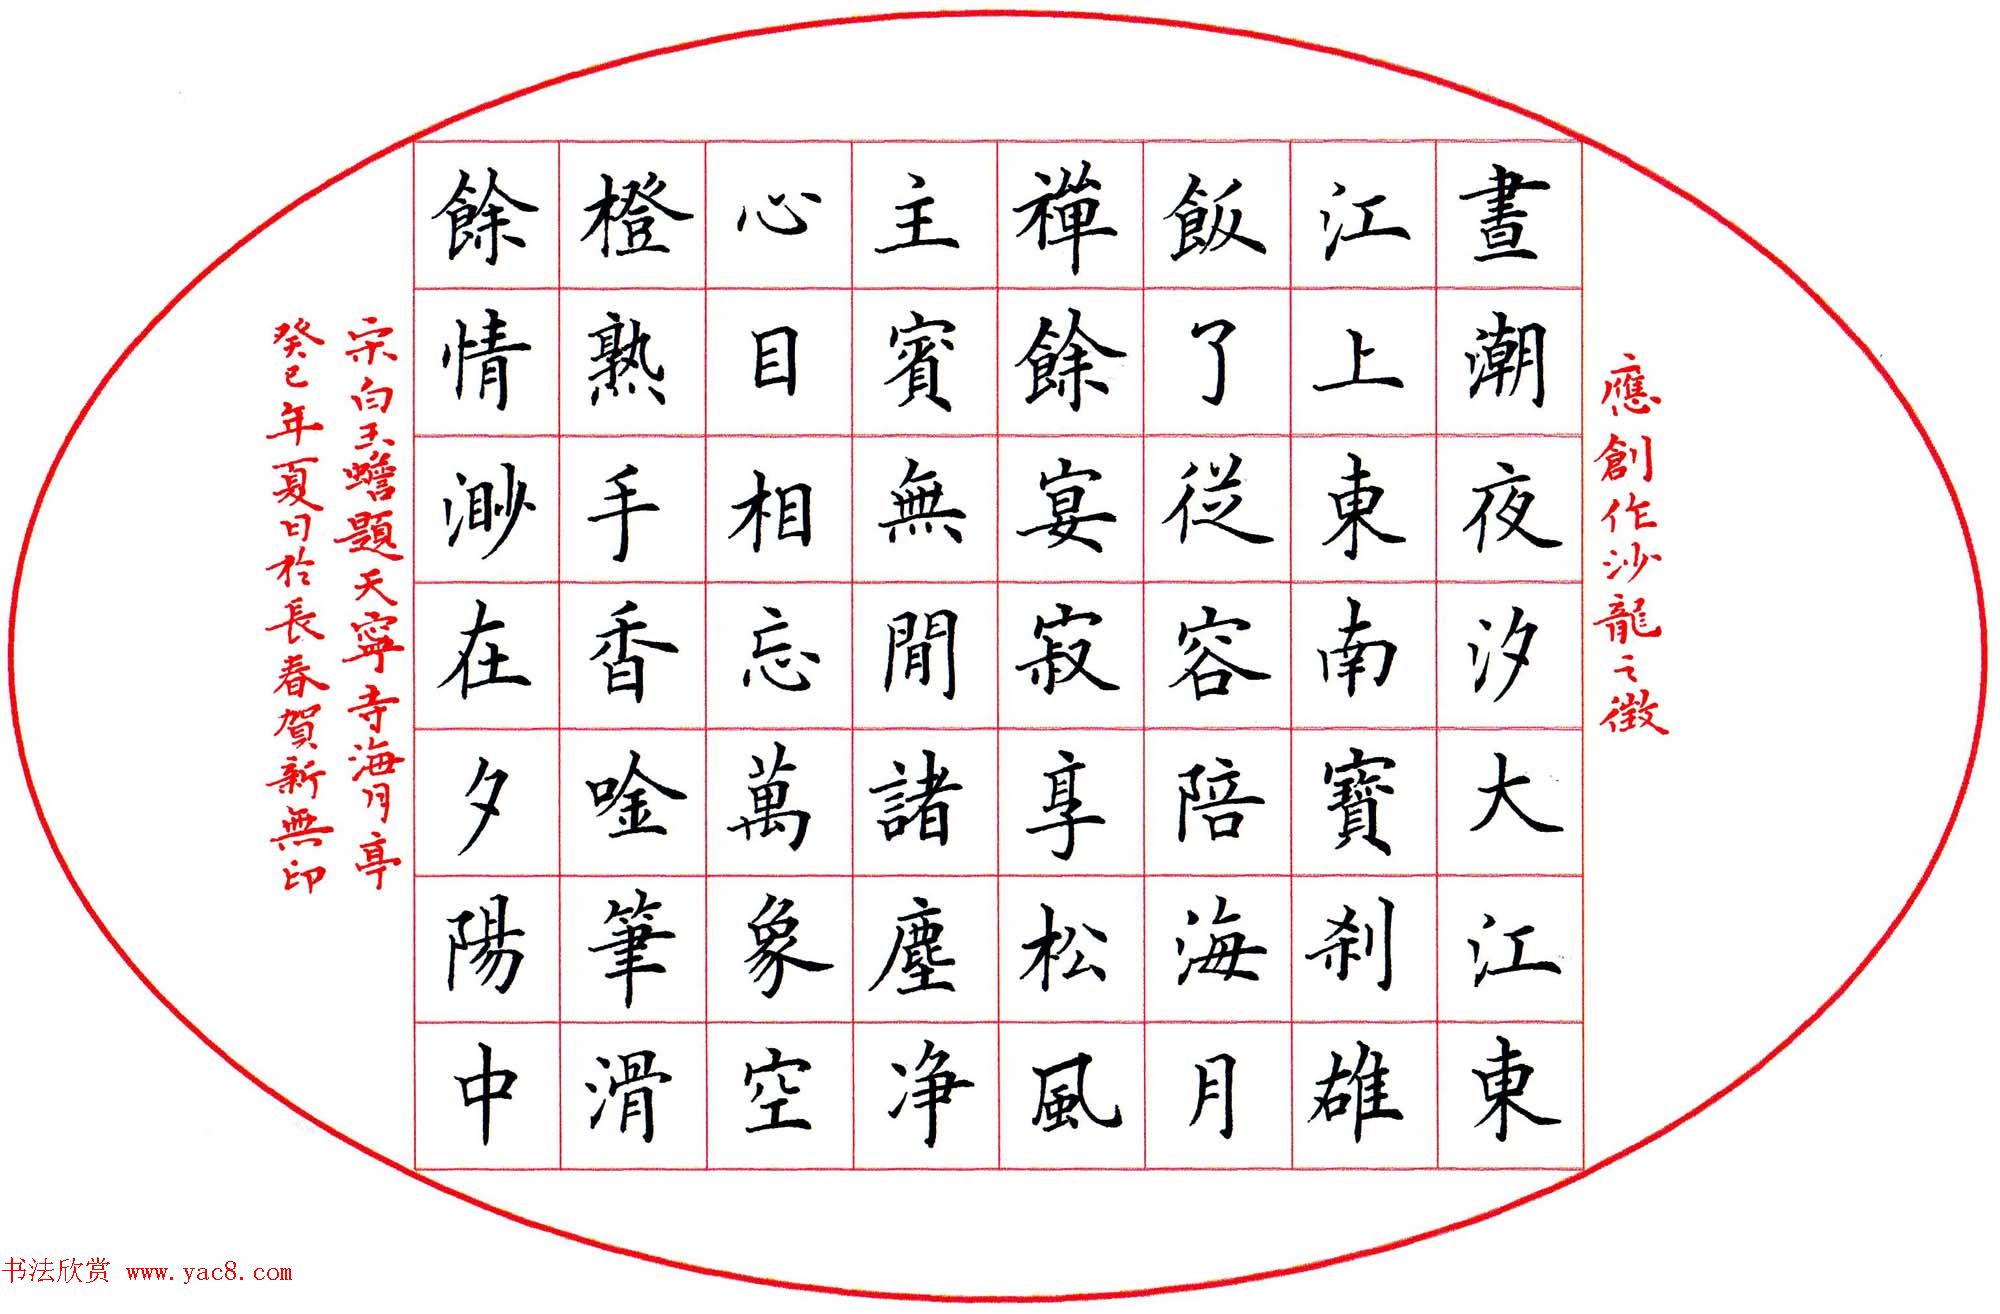 應創作沙龍之徵
晝潮夜汐大江東
江上東南寶刹雄
飯了從容陪海月
禪餘宴寂享松風
主賓無間諸塵净
心目相忘萬象空
橙熟手香唫筆滑
餘情渺在夕陽中
宋白玉蟾題天寧寺海月亭
癸巳年夏日於長春賀新無印
书法欣赏 www.yac8.com